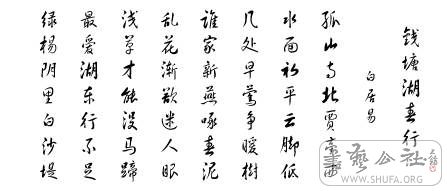 钱塘湖春行
白居易
孤山寺北贾亭西
水面初平云脚低
几处早莺争暖樹
谁家新燕啄春泥
乱花渐欲迷人眼
浅草才能没马蹄
最爱湖东行不足
绿杨阴里白沙堤
藝公社
WWW.SHUFA.ORG